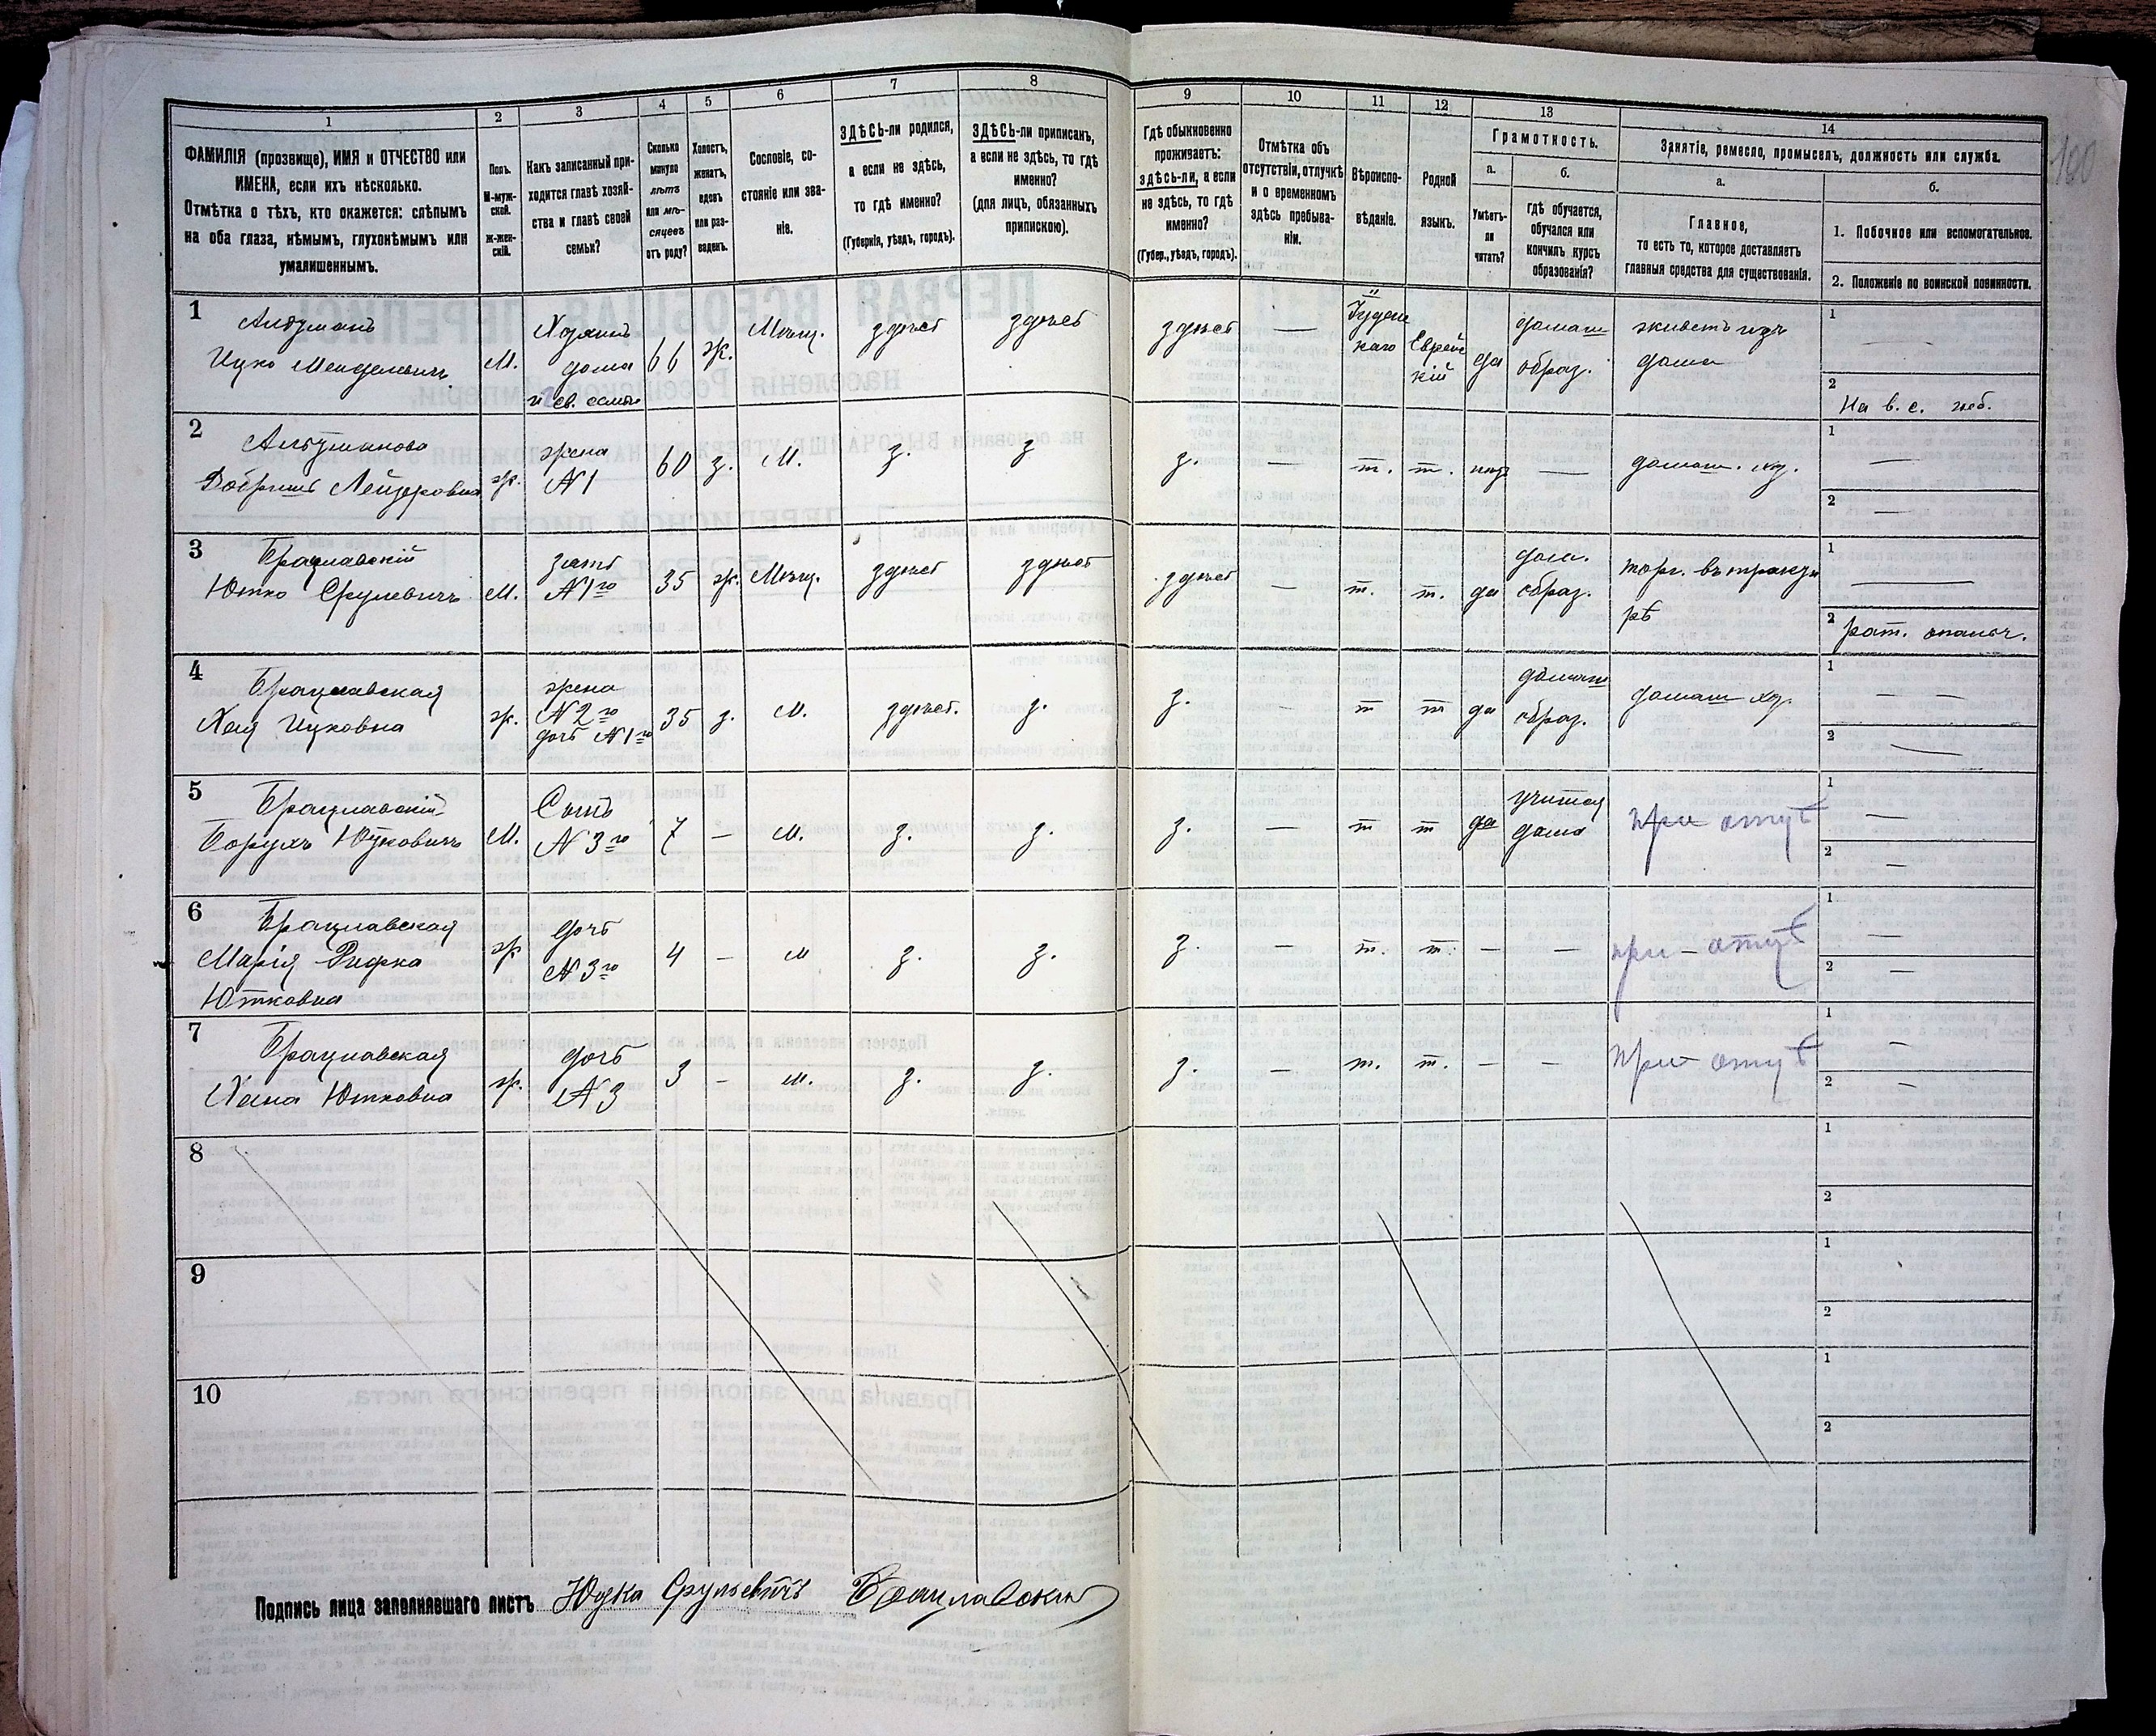 100
1
2
3
4
5
6
7
8
9
10
11
12
13
14
ФАМИЛІЯ (прозвище), ИМЯ и ОТЧЕСТВО или
ИМЕНА, если ихъ нѣсколько.
Отмѣтка о тѣхъ, кто окажется: слѣпымъ
на оба глаза, нѣмымъ, глухонѣмымъ или
умалишеннымъ.
Полъ.
М-муж-
ской.
Ж-жен-
скій.
Какъ записанный при-
ходится главѣ хозяй-
ства и главѣ своей
семьи?
Сколько
минуло
лѣтъ
или мѣ-
сяцевъ
отъ роду?
Холостъ,
женатъ,
вдовъ
или раз-
веденъ.
Сословіе, со-
стояніе или зва-
ніе.
ЗДѢСЬ-ли родился,
а если не здѣсь,
то гдѣ именно?
(Губернія, уѣздъ, городъ).
ЗДѢСЬ-ли приписанъ,
а если не здѣсь, то гдѣ
именно?
(для лицъ, обязанныхъ
припискою).
Гдѣ обыкновенно
проживаетъ:
здѣсь-ли, а если
не здѣсь, то гдѣ
именно?
(Губер., уѣздъ, городъ).
Отмѣтка объ
отсутствіи, отлучкѣ
и о временномъ
здѣсь пребыва-
ніи.
Вѣроиспо-
вѣданіе.
Родной
языкъ.
Грамотность.
а.
Умѣетъ-
ли
читать?
б.
Гдѣ обучается,
обучался или
кончилъ курсъ
образованія?
Занятіе, ремесло, промыселъ, должность или служба.
а.
Главное,
то есть то, которое доставляетъ
главныя средства для существованія.
б.
1. Побочное или вспомогательное.
2. Положеніе по воинской повинности.
1
Альтманъ
Ицко Менделевичъ
М.
Хозяинъ
дома
и св. семьи
66
ж.
Мѣщ.
здѣсь
здѣсь
здѣсь
—
Іудей
ское
Еврей
кій
да
домаш
образ.
живетъ изъ
дома
1
—
2
На в. с.
2
Альтманова
Лейзеровна
ж.
жена
№ 1
60
з.
М.
з.
з
з.
—
т.
т.
нѣт
—
домаш. хоз.
1
—
2
—
3
Брацлавскій
Ютко Срулевичъ
М.
зять
№ 1го
35
ж.
Мѣщ.
здѣсь
здѣсь
здѣсь
—
т.
т.
да
дом.
образ.
торг. въ тракти
рѣ
1
—
2
рат. ополч.
4
Брацлавская
Хая Ицковна
ж.
жена
№ 2го
дочь № 1го
35
з.
М.
здѣсь.
з.
з.
—
т
т
да
домаш
образ.
домаш хоз.
1
— —
2
—
5
Брацлавскій
Борухъ Ютковичъ
М.
Сынъ
№ 3го
7
—
М.
з.
з.
з.
—
т
т
да
учится
дома
при отцѣ
1
—
2
—
6
Брацлавская
Марія Рифка
Ютковна
ж
дочь
№ 3го
4
—
м
з.
з.
з.
—
т.
т.
—
—
при отцѣ
1
—
2
—
7
Брацлавская
Хана Ютковна
ж.
дочь
№ 3
3
—
м.
з.
з.
з.
—
т.
т.
—
—
при отцѣ
1
—
2
—
8
1
2
9
1
2
10
1
2
Подпись лица заполнявшаго листъ Юдка Срульевичъ Брацлавскій